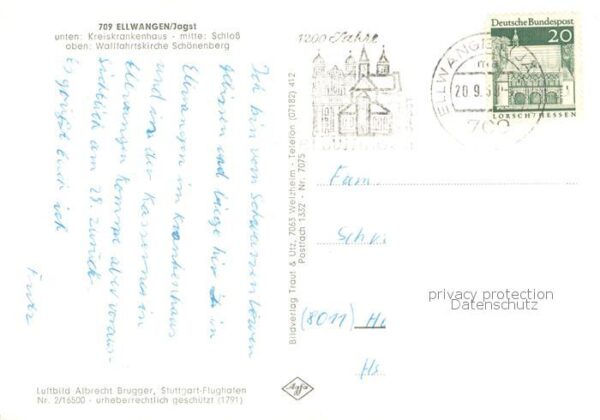 709 ELLWANGEN/Jagst
unten: Kreiskrankenhaus - mitte: Schloß
oben: Wallfahrtskirche Schönenberg
Ich bin vom Schwarzen Löwen
gebissen und liege hier in
Ellwangen im Krankenhaus
und in der Kaserne in
Ellwangen komme aber voraus-
sichtlich am 29. zurück.
Es grüßt Euch
Luftbild Albrecht Brugger, Stuttgart-Flughafen
Nr. 2/16500 - urheberrechtlich geschützt (1791)
Bildverlag Traut & Utz, 7063 Welzheim - Telefon (07182) 412
Postfach 1332 - Nr. 7075
Agfa
1200 Jahre
ELLWANGEN
20.9.
Deutsche Bundespost
20
LORSCH/HESSEN
Fam.
(8011)
privacy protection
Datenschutz